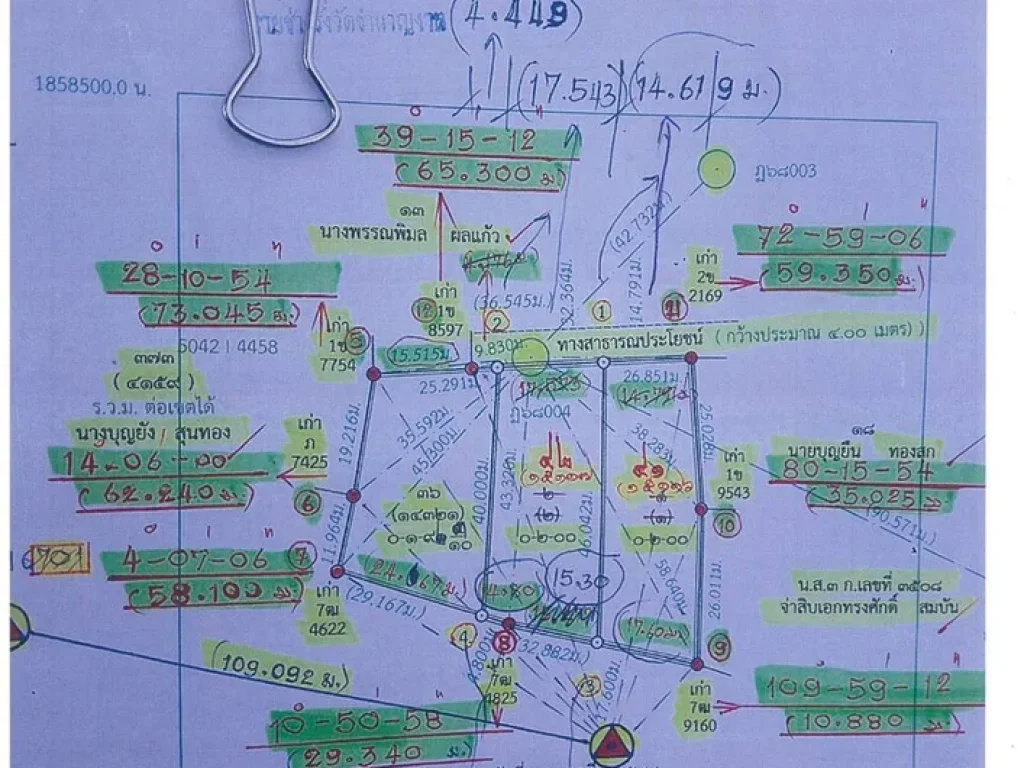 (4.449)
1858500.0 น.
(17.543) (14.619 ม.
39-15-12
(65.300 ม.)
ฏ๖๘003
๑๓
นางพรรณพิมล ผลแก้ว
(42.732ม.)
72-59-06
(59.350 ม.)
28-10-54
(73.045 ม.)
5042 | 4458
เก่า
1ข
7754
5
12
เก่า
1ข
8597
(36.545ม.)
32.364ม.
14.791ม.
2
1
11
เก่า
2ข
2169
ทางสาธารณประโยชน์ ( กว้างประมาณ ๔.๐๐ เมตร)
15.515ม
9.830ม.
25.291ม.
26.851ม.
ฏ๖๘004
๓๗๓
(๔๑๕๙)
ร.ว.ม. ต่อเขตได้
นางบุญยัง สุนทอง
14-06-00
(62.240 ม.)
เก่า
ภ
7425
6
19.216ม.
35.592ม.
45.300ม.
40.000ม.
43.328ม.
46.042ม.
38.283ม.
25.028ม.
๑๘
นายบุญยืน ทองสุก
80-15-54
(35.025 ม
(90.571ม.)
เก่า
1ข
9543
10
๓๖
(๑๔๓๒๑)
๐-๑-๙๘ ๕/๑๐
๙๒
(๑๕๑๓๗)
๒
(๒)
๐-๒-๐๐
๙๑
(๑๕๑๓๖)
(๑)
๐-๒-๐๐
701
4-07-06
(58.100 ม.)
7
เก่า
7ฒ
4622
11.964ม.
24.067ม.
(29.167ม.)
4.80
15.30
17.60ม
58.640ม.
26.011ม.
น.ส.๓ ก.เลขที่ ๓๕๐๘
จ่าสิบเอกทรงศักดิ์ สมบัน
4
8
(32.882ม.)
9
4.800ม.
เก่า
7ฒ
4825
3
47.600ม.
เก่า
7ฒ
9160
(109.092 ม.)
10-50-58
(29.340 ม.)
109-59-12
(10.880 ม.)